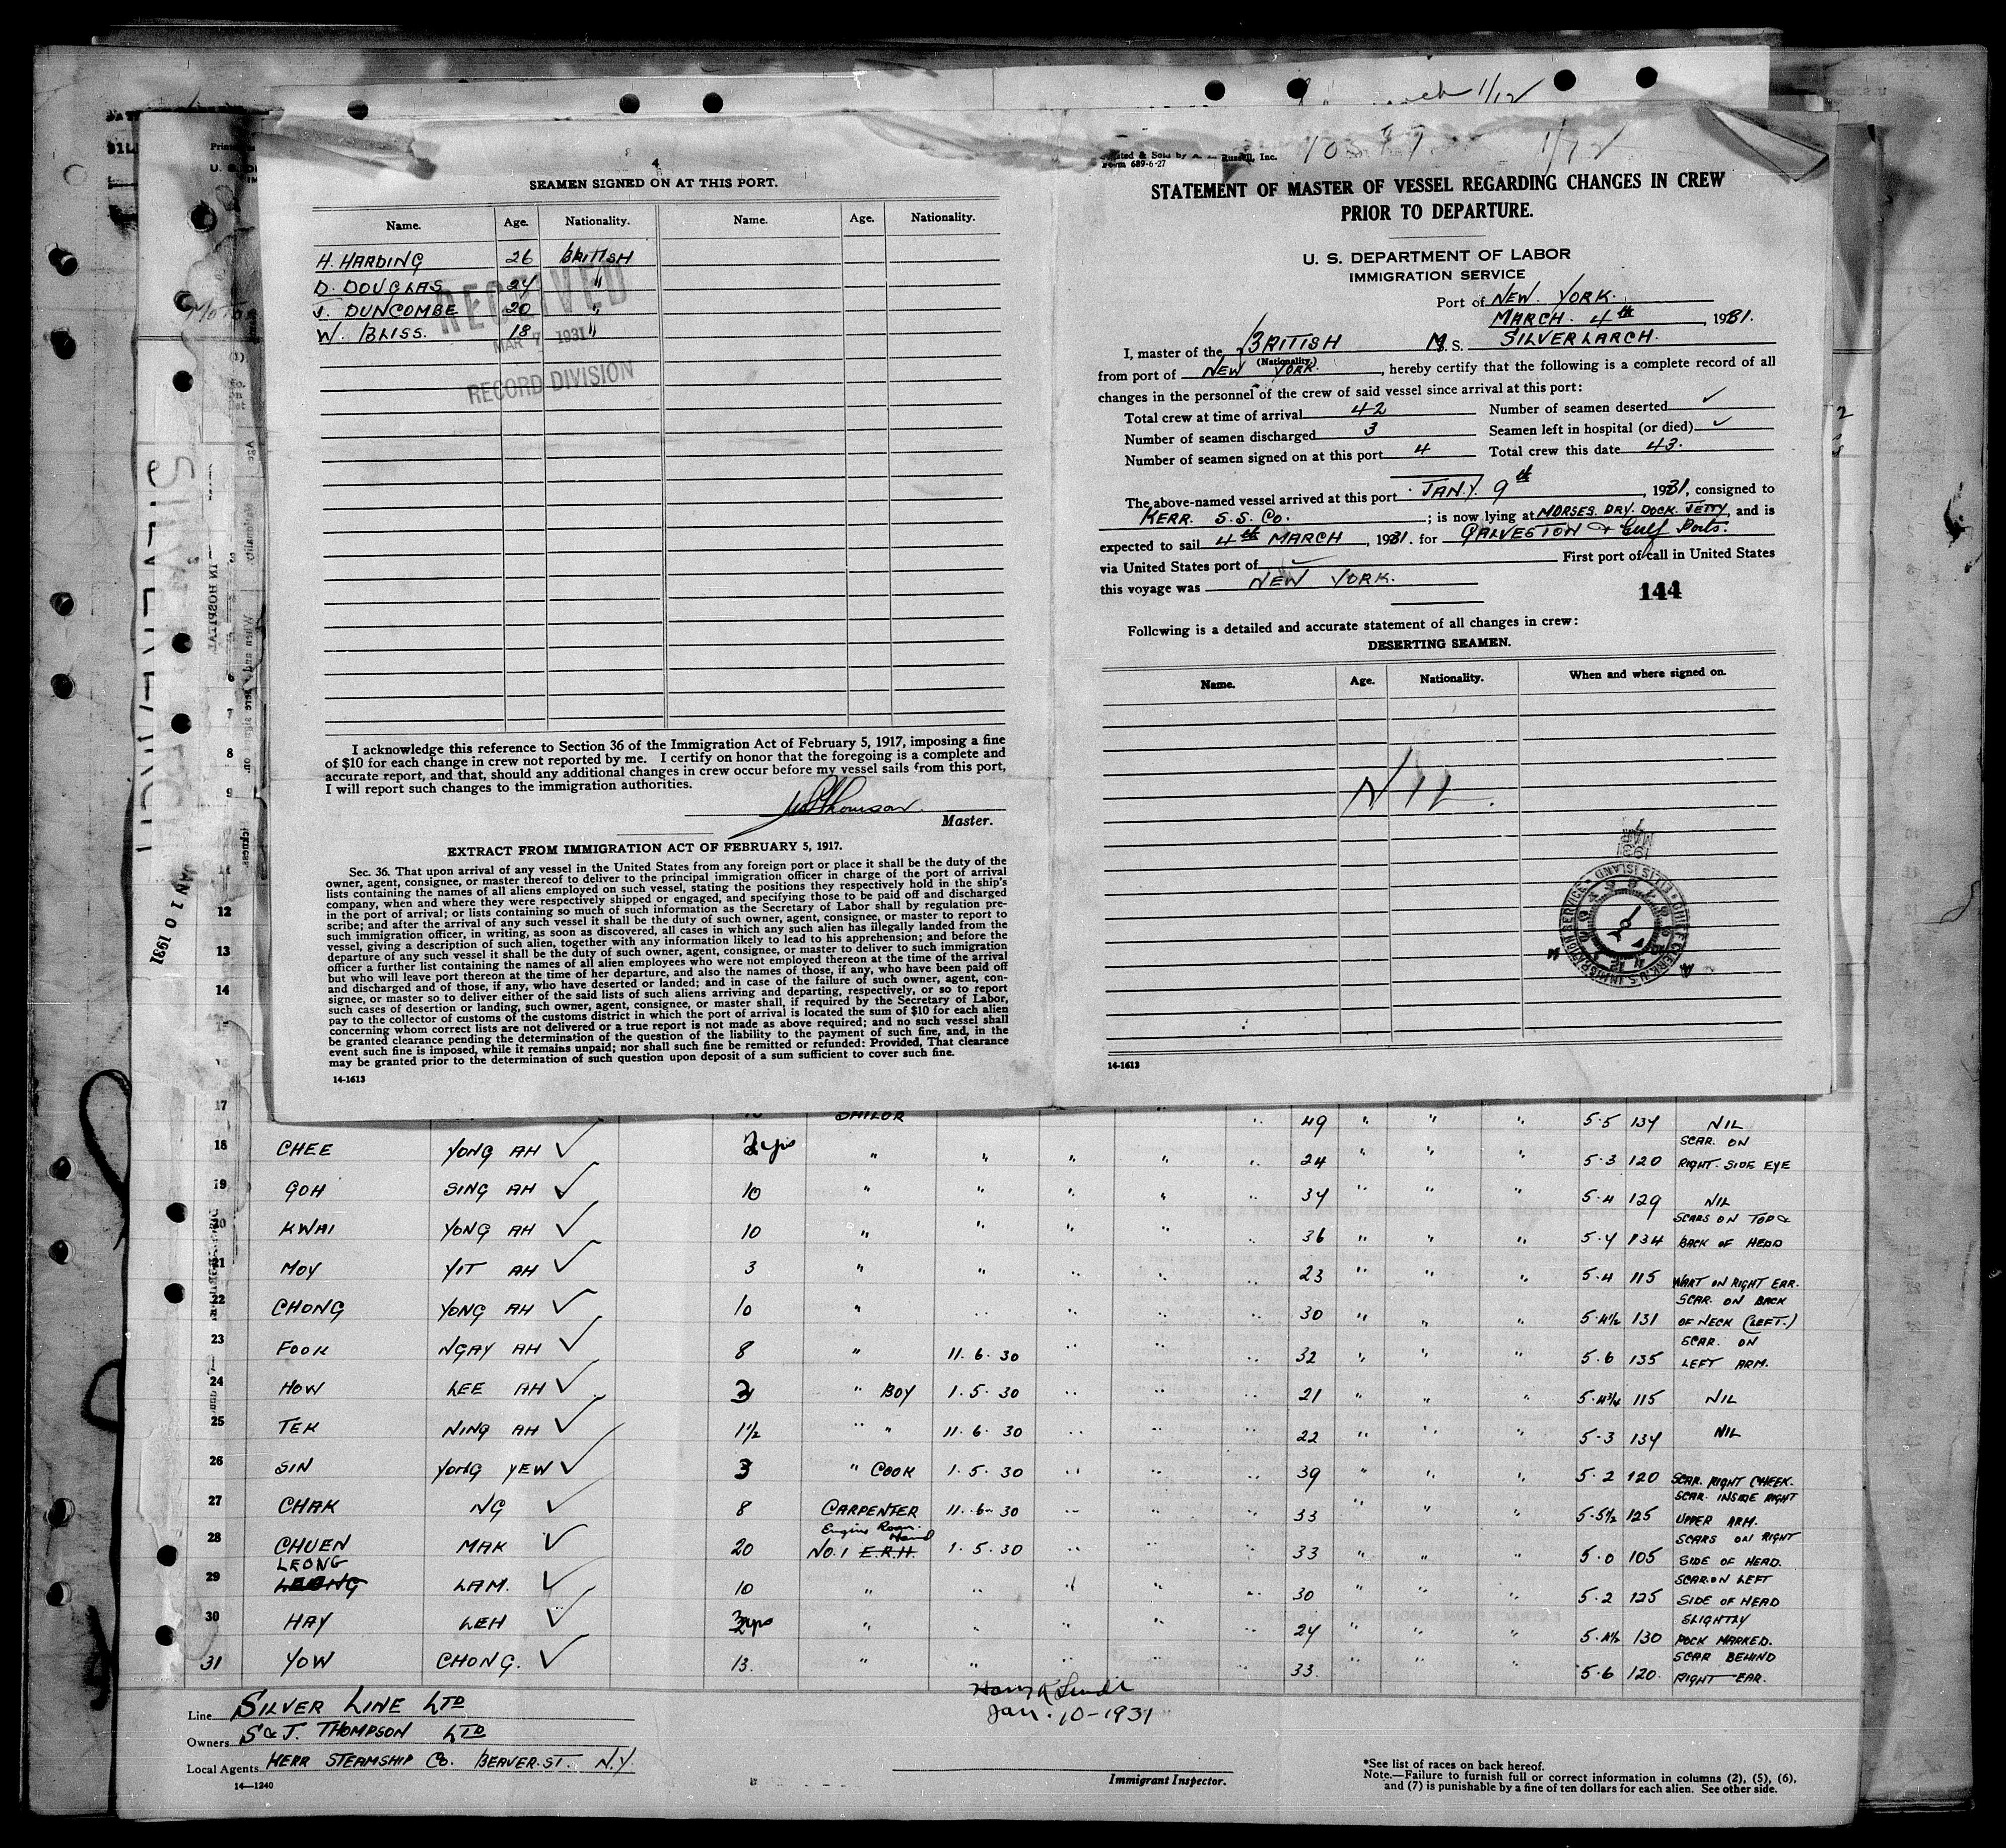 4
SEAMEN SIGNED ON AT THIS PORT.
Name. Age. Nationality. Name. Age. Nationality.
H. HARDING 26 BRITISH
D. DOUGLAS 24 "
J. DUNCOMBE 20 "
W. BLISS. 18 "
RECEIVED
MAR 7 1931
RECORD DIVISION
I acknowledge this reference to Section 36 of the Immigration Act of February 5, 1917, imposing a fine
of $10 for each change in crew not reported by me. I certify on honor that the foregoing is a complete and
accurate report, and that, should any additional changes in crew occur before my vessel sails from this port,
I will report such changes to the immigration authorities.
Thomson
Master.
EXTRACT FROM IMMIGRATION ACT OF FEBRUARY 5, 1917.
Sec. 36. That upon arrival of any vessel in the United States from any foreign port or place it shall be the duty of the
owner, agent, consignee, or master thereof to deliver to the principal immigration officer in charge of the port of arrival
lists containing the names of all aliens employed on such vessel, stating the positions they respectively hold in the ship's
company, when and where they were respectively shipped or engaged, and specifying those to be paid off and discharged
in the port of arrival; or lists containing so much of such information as the Secretary of Labor shall by regulation pre-
scribe; and after the arrival of any such vessel it shall be the duty of such owner, agent, consignee, or master to report to
such immigration officer, in writing, as soon as discovered, all cases in which any such alien has illegally landed from the
vessel, giving a description of such alien, together with any information likely to lead to his apprehension; and before the
departure of any such vessel it shall be the duty of such owner, agent, consignee, or master to deliver to such immigration
officer a further list containing the names of all alien employees who were not employed thereon at the time of the arrival
but who will leave port thereon at the time of her departure, and also the names of those, if any, who have been paid off
and discharged and of those, if any, who have deserted or landed; and in case of the failure of such owner, agent, con-
signee, or master so to deliver either of the said lists of such aliens arriving and departing, respectively, or so to report
such cases of desertion or landing, such owner, agent, consignee, or master shall, if required by the Secretary of Labor,
pay to the collector of customs of the customs district in which the port of arrival is located the sum of $10 for each alien
concerning whom correct lists are not delivered or a true report is not made as above required; and no such vessel shall
be granted clearance pending the determination of the question of the liability to the payment of such fine, and, in the
event such fine is imposed, while it remains unpaid; nor shall such fine be remitted or refunded: Provided, That clearance
may be granted prior to the determination of such question upon deposit of a sum sufficient to cover such fine.
14-1613
Russell, Inc.
Form 689-6-27
STATEMENT OF MASTER OF VESSEL REGARDING CHANGES IN CREW
PRIOR TO DEPARTURE.
U. S. DEPARTMENT OF LABOR
IMMIGRATION SERVICE
Port of NEW YORK.
MARCH. 4th, 1931.
I, master of the BRITISH M. S. SILVERLARCH.
(Nationality.)
from port of NEW YORK., hereby certify that the following is a complete record of all
changes in the personnel of the crew of said vessel since arrival at this port:
Total crew at time of arrival 42 Number of seamen deserted ✓
Number of seamen discharged 3 Seamen left in hospital (or died) ✓
Number of seamen signed on at this port 4 Total crew this date 43.
The above-named vessel arrived at this port JANY. 9th, 1931, consigned to
KERR. S.S. Co.; is now lying at MORSES. DRY. DOCK. JETTY, and is
expected to sail 4th MARCH, 1931. for GALVESTON & Gulf Ports.
via United States port of ✓ First port of call in United States
this voyage was NEW YORK.
144
Following is a detailed and accurate statement of all changes in crew:
DESERTING SEAMEN.
Name. Age. Nationality. When and where signed on.
NIL.
CHIEF CLERK, U.S. IMMIGRATION SERVICE ELLIS ISLAND
14-1613
SILVERLARCH
JAN 10 1931
17 SAILOR 49 " " " 5·5 134 NIL
18 CHEE YONG AH ✓ 2yrs " " " " " 24 " " " 5·3 120 SCAR. ON RIGHT. SIDE EYE
19 GOH SING AH ✓ 10 " " " " " 34 " " " 5·4 129 NIL
20 KWAI YONG AH ✓ 10 " " " " " 36 " " " 5·4 134 SCARS ON TOP & BACK OF HEAD
21 MOY YIT AH ✓ 3 " " " " " 23 " " " 5·4 115 WART ON RIGHT EAR.
22 CHONG YONG AH ✓ 10 " " " " " 30 " " " 5·4½ 131 SCAR. ON BACK OF NECK (LEFT.)
23 FOOK NGAY AH ✓ 8 " 11.6.30 " " " 32 " " " 5·6 135 SCAR. ON LEFT ARM.
24 HOW LEE AH ✓ 3 " BOY 1.5.30 " " " 21 " " " 5·4¾ 115 NIL
25 TEK NING AH ✓ 1½ " " 11.6.30 " " " 22 " " " 5·3 134 NIL
26 SIN YONG YEW ✓ 3 " COOK 1.5.30 " " " 39 " " " 5·2 120 SCAR. RIGHT CHEEK.
27 CHAK NG ✓ 8 CARPENTER 11.6.30 " " " 33 " " " 5·5½ 125 SCAR. INSIDE RIGHT UPPER ARM.
28 CHUEN MAK ✓ 20 No.1 E.R.H. Engine Room Hand 1.5.30 " " " 33 " " " 5·0 105 SCARS ON RIGHT SIDE OF HEAD.
29 LEONG LAM. ✓ 10 " " " " " 30 " " " 5·2 125 SCAR ON LEFT SIDE OF HEAD
30 HAY LEH ✓ " " " " " 24 " " " 5·4½ 130 SLIGHTLY POCK MARKED.
31 YOW CHONG. ✓ 13. " " " " " 33. " " " 5·6 120. SCAR BEHIND RIGHT EAR.
Line SILVER LINE LTD
Owners S & J. THOMPSON LTD
Local Agents KERR STEAMSHIP Co. BEAVER.ST. N.Y.
14—1240
Jan. 10-1931
Immigrant Inspector.
*See list of races on back hereof.
Note.—Failure to furnish full or correct information in columns (2), (5), (6),
and (7) is punishable by a fine of ten dollars for each alien. See other side.